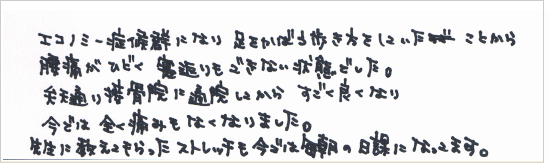 エコノミー症候群になり 足をかばう歩き方をしていた ことから
腰痛がひどく 寝返りもできない状態でした。
弁天通り接骨院に通院してから すごく良くなり
今では全く痛みもなくなりました。
先生に教えてもらったストレッチも今では毎朝の日課になってます。